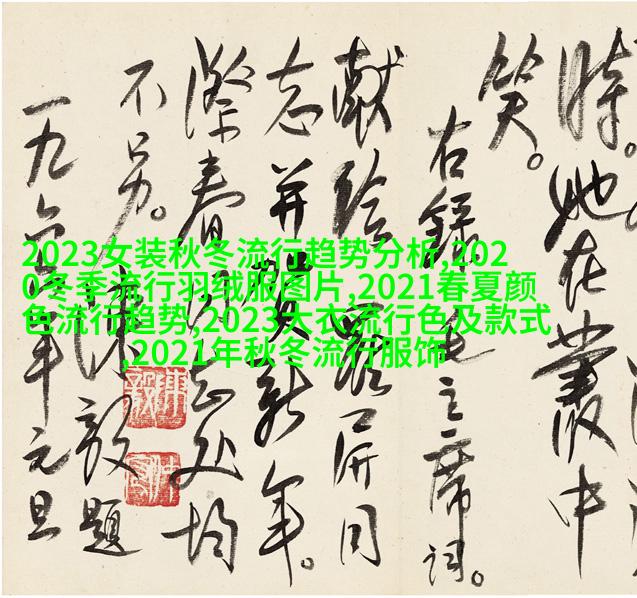 時。她在叢中
笑。
右録毛主席詞。
献给
屏同
志并賀新年。
際春
处均
不另。
陳毅題
一九六
年元旦
2023女装秋冬流行趋势分析,202
0冬季流行羽绒服图片,2021春夏颜
色流行趋势,2023大衣流行色及款式
,2021年秋冬流行服饰